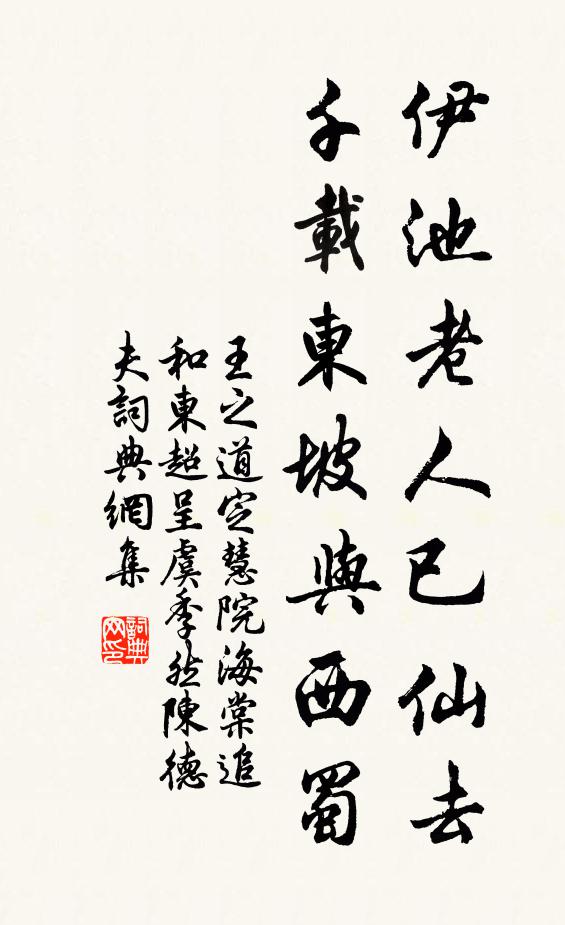 伊池老人已仙去
千載東坡與西蜀
王之道定慧院海棠追
和東超呈虞季然陳德
夫詞典網集
詞典
网印